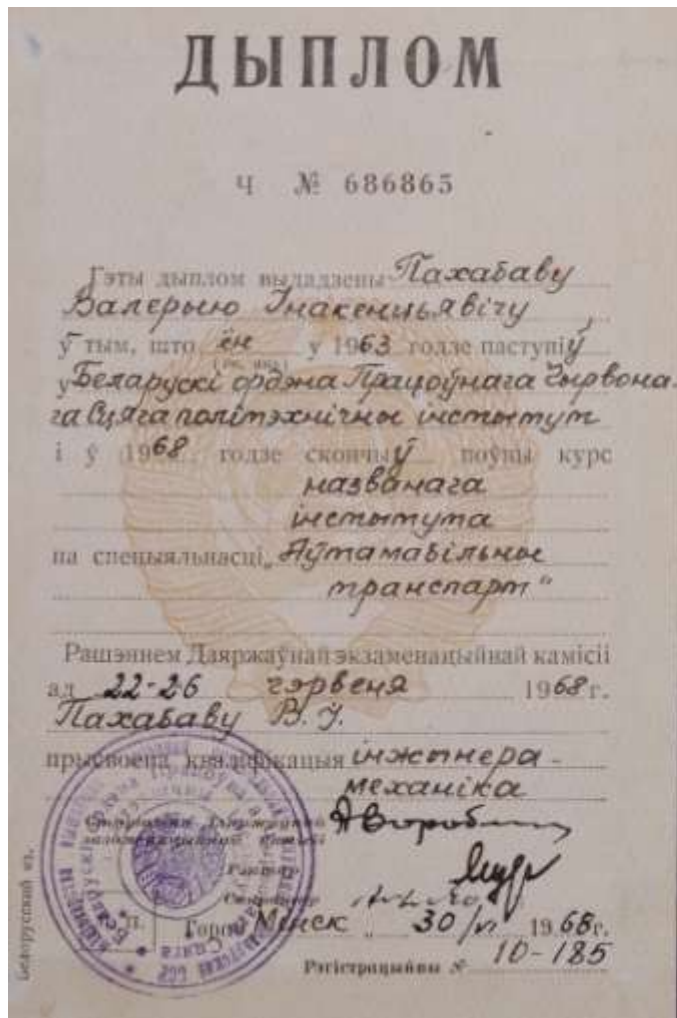 ДЫПЛОМ
Ч № 686865
Гэты дыплом выдадзены Пахабаву
Валерыю Інакенцьявічу
ў тым, што ён у 1963 годзе паступіў
у Беларускі ордэна Працоўнага Чырвона-
га Сцяга політэхнічны інстытут
і ў 1968 годзе скончыў поўны курс
названага
інстытута
па спецыяльнасці „Аўтамабільны
транспарт“
Рашэннем Дзяржаўнай экзаменацыйнай камісіі
ад 22-26 чэрвеня 1968 г.
Пахабаву В. Ў.
прысвоена кваліфікацыя інжынера-
механіка
Рэктар
Сакратар
Горад Мінск „ 30/VI 1968 г.
Рэгістрацыйны № 10-185
Белорусский яз.